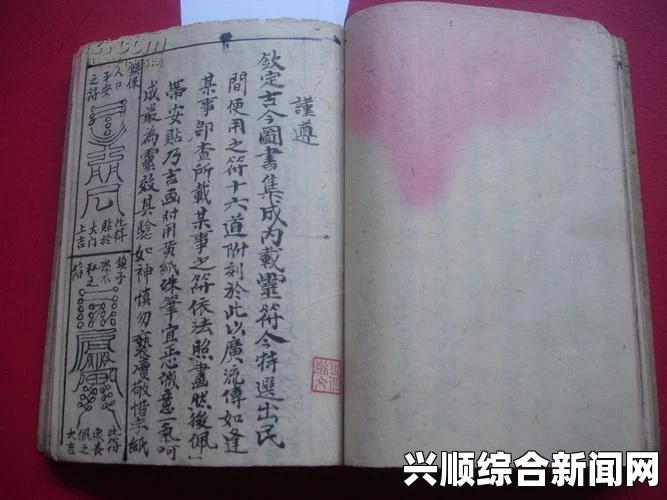 謹遵
欽定古今圖書集成內載靈符今特選出民
間使用之符十六道附刻於此以廣流傳如逢
某事即查所載某事之符依法照畫然後佩
帶安貼乃吉画时用黄紙硃筆宜正心誠意一氣呵
成最為靈效其驗如神慎勿褻凟敬惜字紙
鎮保
人口
平安
之符
此符
貼於
大门
上吉
鎮子
之符
此符
佩之
大吉
兴顺综合新闻网